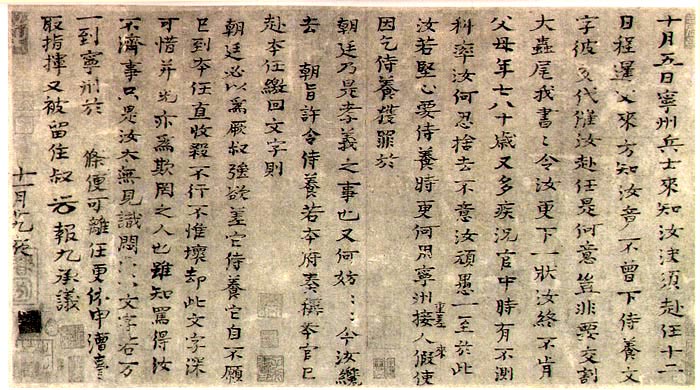 十月五日寧州兵士來知汝決須赴任十二
日程暹父來方知汝意不曾下侍養文
字彼交代催汝赴任是何意豈非要交割
大蟲尾我書令汝更下一狀汝終不肯
父母年七八十歲又多疾況官中時有不測
科率汝何忍捨去不意汝頑愚一至於此
汝若堅心要侍養時更何用寧州接人假使
因乞侍養獲罪於
朝廷乃是孝義之事也又何妨今汝纔
去 朝旨許令侍養若本府奏稱本官已
赴本任繳回文字則
朝廷必以為厥叔強欲差它侍養它自不願
已到本任直收殺不行不惟壞却此文字深
可惜并光亦為欺罔之人也雖知罵得汝
不濟事只是汝太無見識悶文字右方
一到寧州於 條便可離任更你申漕臺
取指揮又被留住叔 光 報九承議
十一月